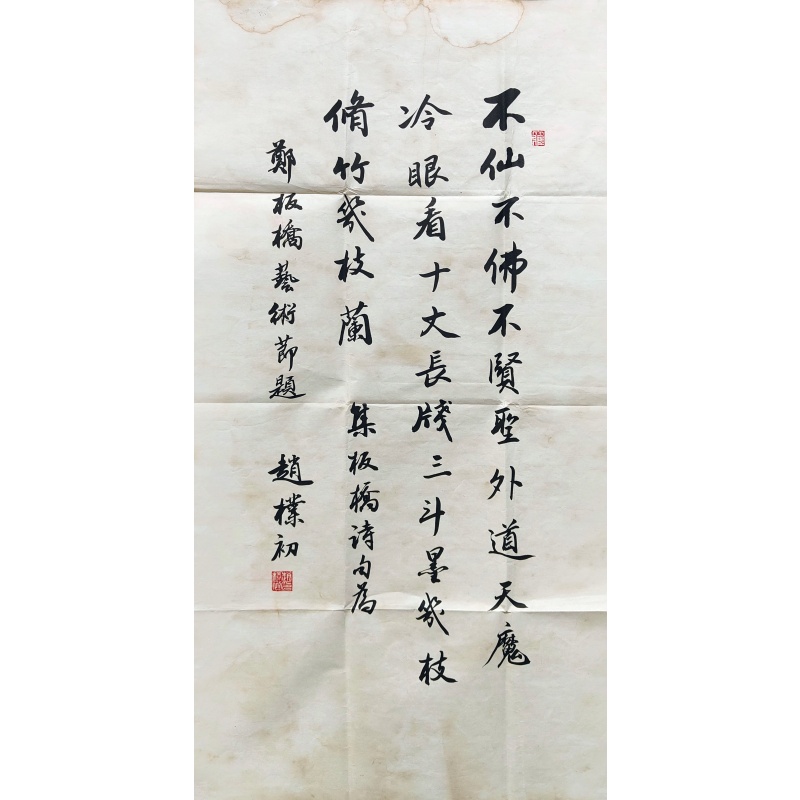 不仙不佛不賢聖外道天魔
冷眼看十丈長牋三斗墨幾枝
脩竹幾枝蘭 集板橋詩句為
鄭板橋藝術節題 趙樸初